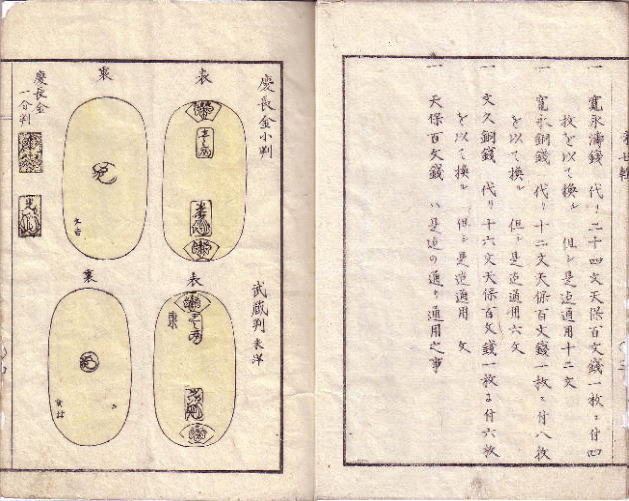 一 寛永濤錢 代リ二十四文天保百文錢一枚ニ付四
枚を以て換ル 但シ是迄通用十二文
一 寛永銅錢 代リ十二文天保百文錢一枚ニ付八枚
を以て換ル 但シ是迄通用六文
一 文久銅錢 代リ十六文天保百文錢一枚ニ付六枚
を以て換ル 但シ是迄通用 文
一 天保百文錢 ハ是迄の通り通用之事
慶長金小判
表
裏
武蔵判
表
裏
慶長金
一分判